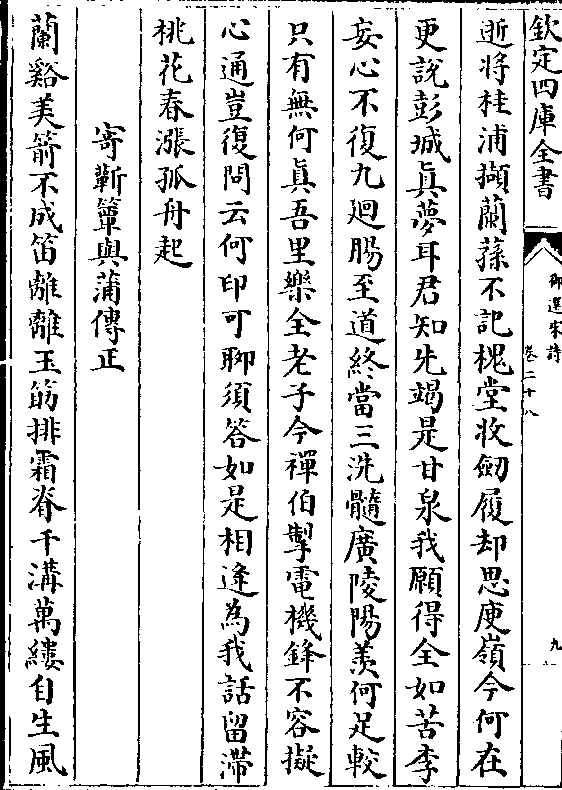 欽定四庫全書
御選宋詩
卷二十八
九
逝將桂浦擷蘭蓀不記槐堂收劒履却思庾嶺今何在
更説彭城真夢耳君知先竭是甘泉我願得全如苦李
妄心不復九廻腸至道終當三洗髓廣陵陽羨何足較
只有無何真吾里樂全老子今禪伯掣電機鋒不容擬
心通豈復問云何印可聊須答如是相逢為我話留滯
桃花春漲孤舟起
寄蘄簟與蒲傳正
蘭谿美箭不成笛離離玉筯排霜脊千溝萬縷自生風